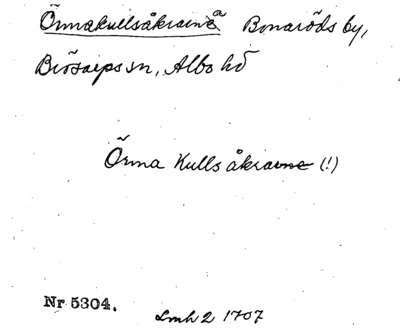 Õrmakullsåkrarna Bonaröds by,
Brösarps sn, Albo hd
Õrma Kulls åkrarne (!)
Nr 5304.
Lmh 2 1707